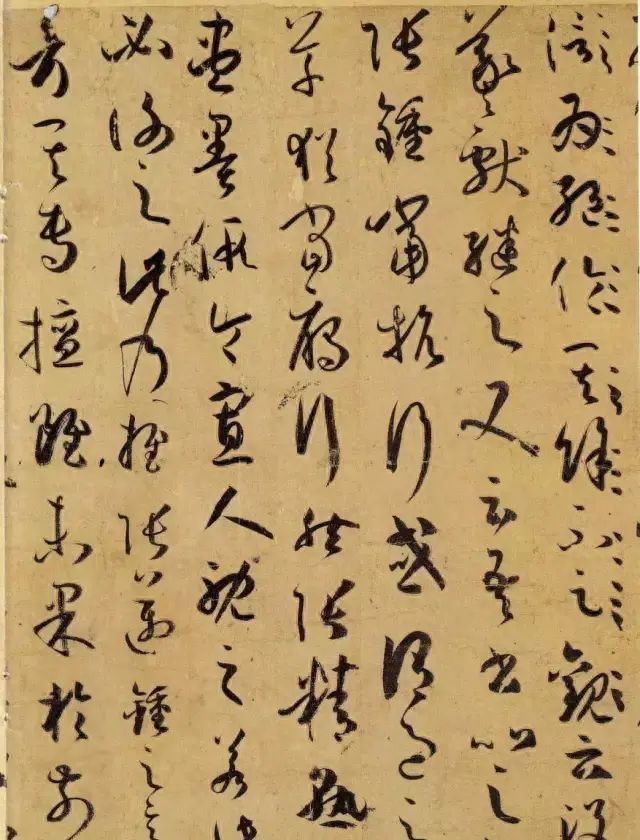 為絕倫其餘不足觀云沒
羲獻繼之又云吾書比之
張鍾當抗行或謂過之
草猶當鴈行然張精熟
盡墨假令寡人耽之若此
必謝之此乃推張邁鍾之意
考其專擅雖未果於前